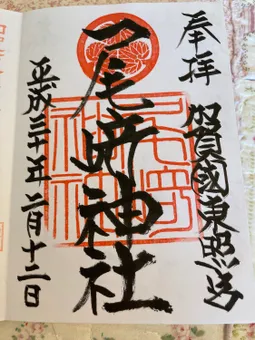 奉拝
加賀國東照宮
尾崎神社
平成三十年二月十二日